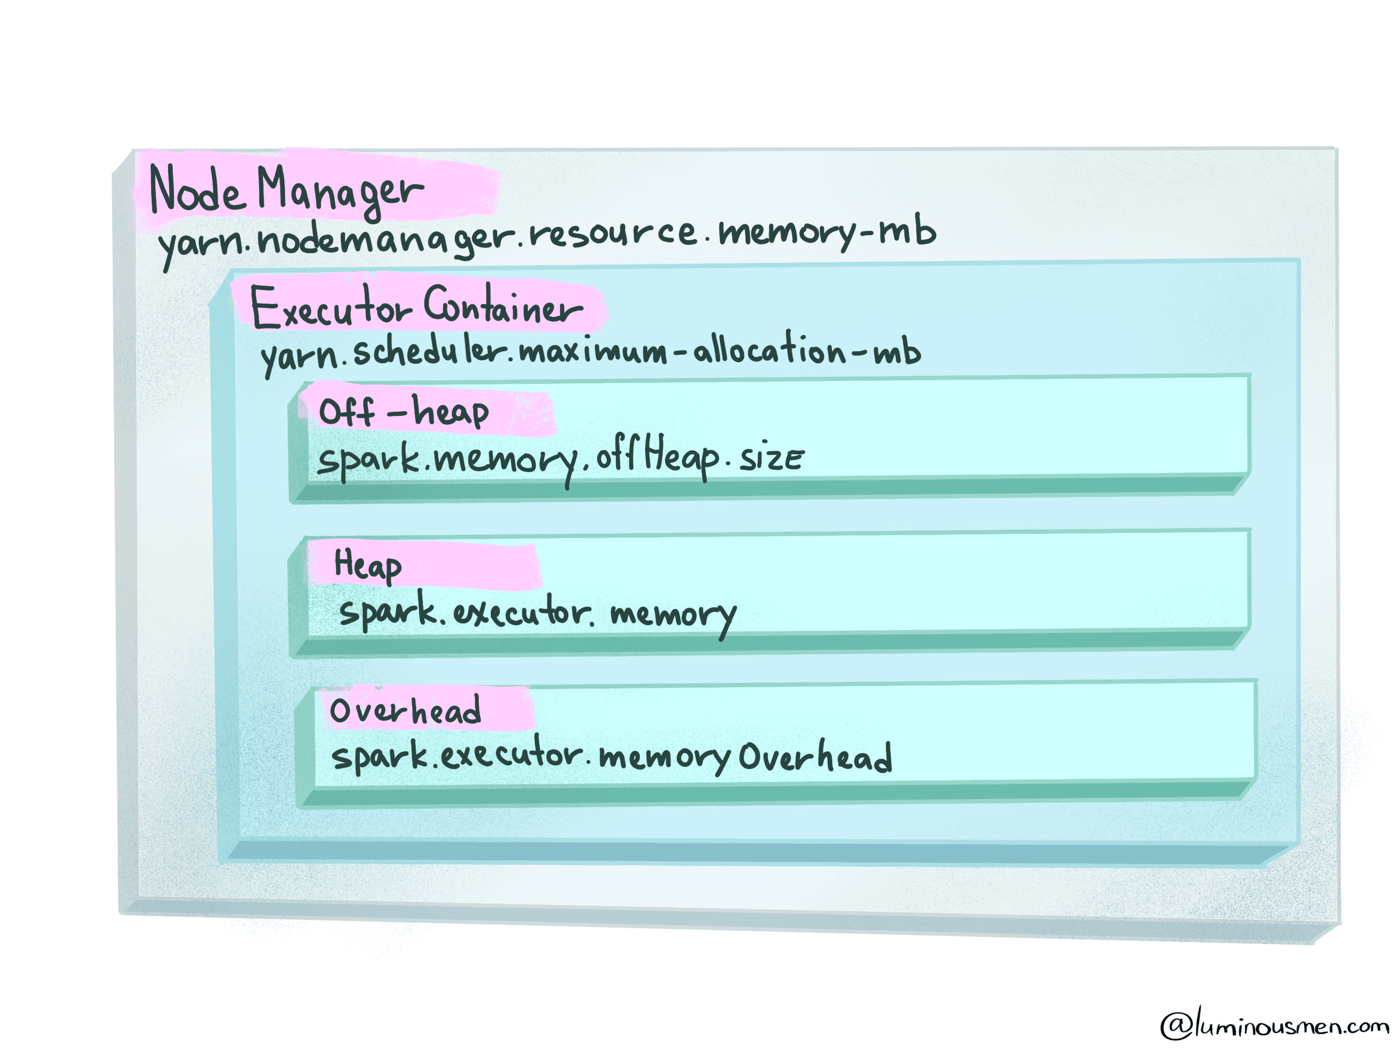 Node Manager
yarn.nodemanager.resource.memory-mb
Executor Container
yarn.scheduler.maximum-allocation-mb
Off-heap
spark.memory.offHeap.size
Heap
spark.executor.memory
Overhead
spark.executor.memoryOverhead
@luminousmen.com